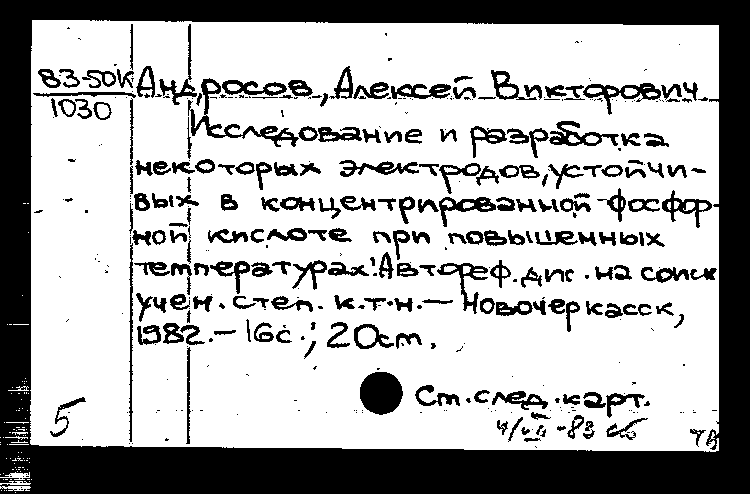 83-50К Андросов, Алексей Викторович
1030
Исследование и разработка
некоторых электродов, устойчи-
вых в концентрированной фосфор-
ной кислоте при повышенных
температурах: Автореф. дис. на соиск
учен. степ. к.т.н. — Новочеркасск,
1982. — 16с.; 20см.
Ст. след. карт.
5